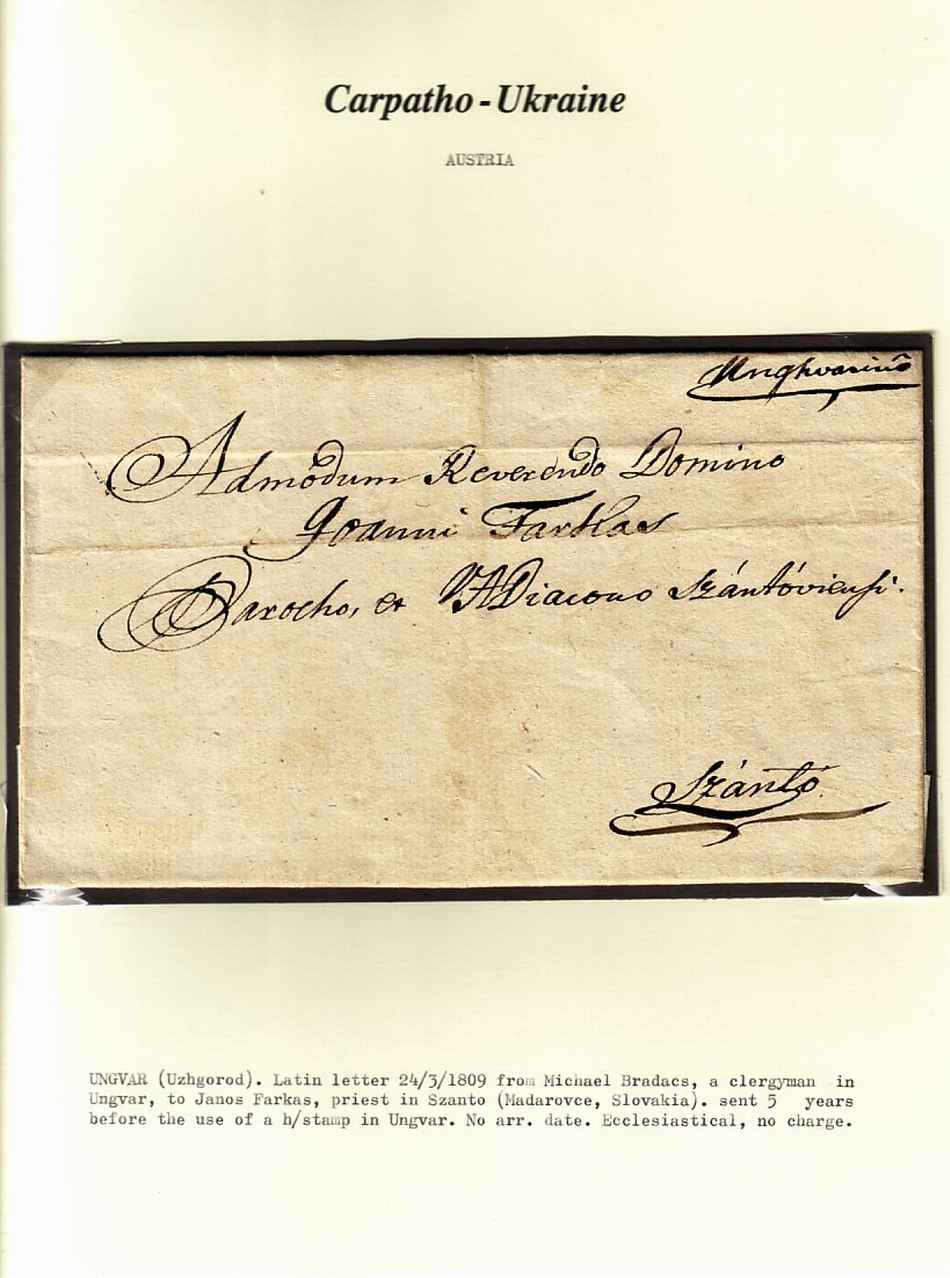 Carpatho-Ukraine
AUSTRIA
Unghvarinô
Admodum Reverendo Domino
Joanni Farkas
Parocho, et VADiacono Szántóviensi.
Szántó
UNGVAR (Uzhgorod). Latin letter 24/3/1809 from Michael Bradacs, a clergyman in
Ungvar, to Janos Farkas, priest in Szanto (Madarovce, Slovakia). sent 5 years
before the use of a h/stamp in Ungvar. No arr. date. Ecclesiastical, no charge.